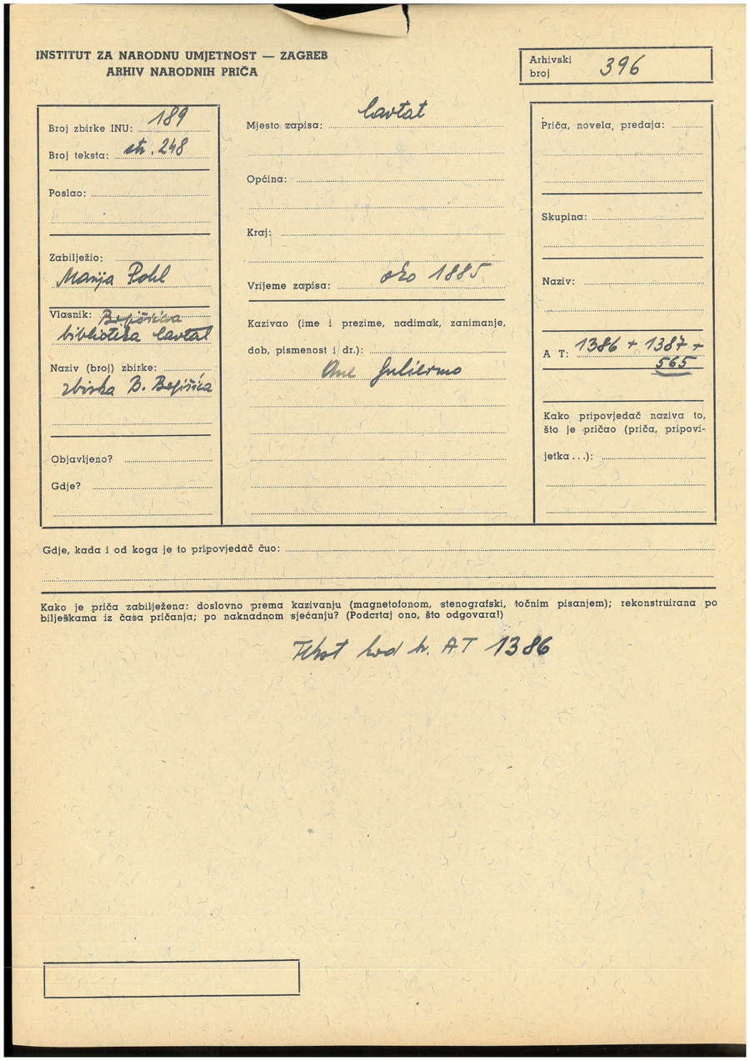 INSTITUT ZA NARODNU UMJETNOST — ZAGREB
ARHIV NARODNIH PRIČA
Arhivski broj 396
Broj zbirke INU: 189
Broj teksta: str. 248
Poslao:
Zabilježio:
Marija Pohl
Vlasnik: Bogišićeva
biblioteka Cavtat
Naziv (broj) zbirke:
zbirka B. Bogišića
Objavljeno?
Gdje?
Mjesto zapisa: Cavtat
Općina:
Kraj:
Vrijeme zapisa: oko 1885.
Kazivao (ime i prezime, nadimak, zanimanje,
dob, pismenost i dr.):
Ane
Priča, novela, predaja:
Skupina:
Naziv:
A T: 1386 + 1387 +
565
Kako pripovjedač naziva to,
što je pričao (priča, pripovi-
jetka...):
Gdje, kada i od koga je to pripovjedač čuo:
Kako je priča zabilježena: doslovno prema kazivanju (magnetofonom, stenografski, točnim pisanjem); rekonstruirana po
bilješkama iz časa pričanja; po naknadnom sjećanju? (Podcrtaj ono, što odgovara!)
Tekst kod br. AT 1386